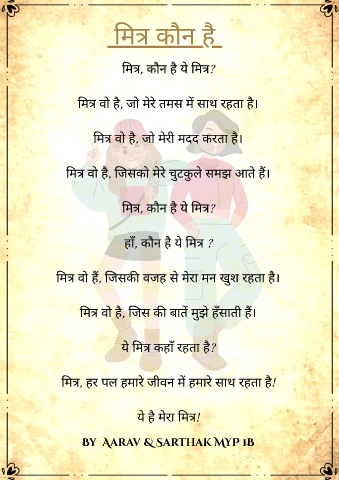 मित्र कौन है
मित्र, कौन है ये मित्र?
मित्र वो है, जो मेरे तमस में साथ रहता है।
मित्र वो है, जो मेरी मदद करता है।
मित्र वो है, जिसको मेरे चुटकुले समझ आते हैं।
मित्र, कौन है ये मित्र?
हाँ, कौन है ये मित्र ?
मित्र वो हैं, जिसकी वजह से मेरा मन खुश रहता है।
मित्र वो है, जिस की बातें मुझे हँसाती हैं।
ये मित्र कहाँ रहता है?
मित्र, हर पल हमारे जीवन में हमारे साथ रहता है!
ये है मेरा मित्र!
BY AARAV & SARTHAK MYP 1B